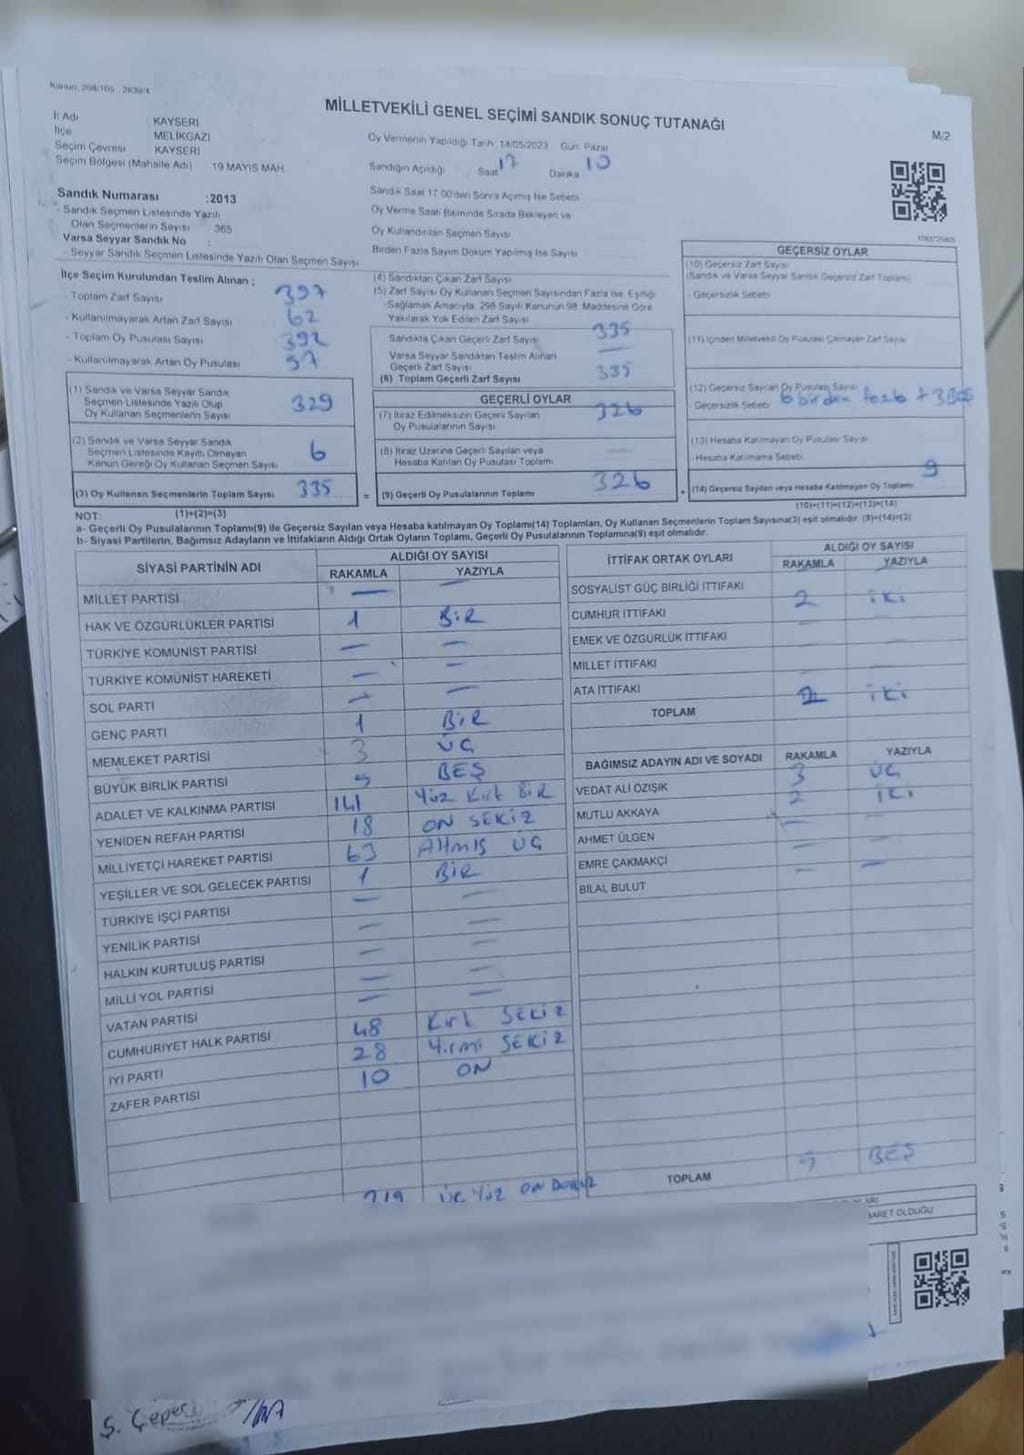 MİLLETVEKİLİ GENEL SEÇİMİ SANDIK SONUÇ TUTANAĞI
M/2
İl Adı KAYSERİ
İlçe MELİKGAZİ
Seçim Çevresi KAYSERİ
Seçim Bölgesi (Mahalle Adı) 19 MAYIS MAH.
Oy Vermenin Yapıldığı Tarih: 14/05/2023 Gün: Pazar
Sandığın Açıldığı Saat 17 Dakika 10
Sandık Saat 17.00'den Sonra Açılmış İse Sebebi
Oy Verme Saati Bitiminde Sırada Bekleyen ve
Oy Kullandırılan Seçmen Sayısı
Birden Fazla Sayım Döküm Yapılmış İse Sayısı
Sandık Numarası :2013
- Sandık Seçmen Listesinde Yazılı
Olan Seçmenlerin Sayısı 365
Varsa Seyyar Sandık No :
- Seyyar Sandık Seçmen Listesinde Yazılı Olan Seçmen Sayısı
İlçe Seçim Kurulundan Teslim Alınan ;
- Toplam Zarf Sayısı 397
- Kullanılmayarak Artan Zarf Sayısı 62
- Toplam Oy Pusulası Sayısı 392
- Kullanılmayarak Artan Oy Pusulası 57
(1) Sandık ve Varsa Seyyar Sandık
Seçmen Listesinde Yazılı Olup
Oy Kullanan Seçmenlerin Sayısı 329
(2) Sandık ve Varsa Seyyar Sandık
Seçmen Listesinde Kayıtlı Olmayan
Kanun Gereği Oy Kullanan Seçmen Sayısı 6
(3) Oy Kullanan Seçmenlerin Toplam Sayısı 335
(1)+(2)=(3)
(4) Sandıktan Çıkan Zarf Sayısı
(5) Zarf Sayısı Oy Kullanan Seçmen Sayısından Fazla İse, Eşitliği
Sağlamak Amacıyla, 298 Sayılı Kanunun 98. Maddesine Göre
Yakılarak Yok Edilen Zarf Sayısı
Sandıkta Çıkan Geçerli Zarf Sayısı 335
Varsa Seyyar Sandıktan Teslim Alınan
Geçerli Zarf Sayısı —
(6) Toplam Geçerli Zarf Sayısı 335
GEÇERLİ OYLAR
(7) İtiraz Edilmeksizin Geçerli Sayılan
Oy Pusulalarının Sayısı 326
(8) İtiraz Üzerine Geçerli Sayılan veya
Hesaba Katılan Oy Pusulası Toplamı —
= (9) Geçerli Oy Pusulalarının Toplamı 326
GEÇERSİZ OYLAR
(10) Geçersiz Zarf Sayısı
(Sandık ve Varsa Seyyar Sandık Geçersiz Zarf Toplamı)
- Geçersizlik Sebebi
(11) İçinden Milletvekili Oy Pusulası Çıkmayan Zarf Sayısı
(12) Geçersiz Sayılan Oy Pusulası Sayısı
- Geçersizlik Sebebi 6 birden fazla + 3 BOŞ
(13) Hesaba Katılmayan Oy Pusulası Sayısı
- Hesaba Katılmama Sebebi
+ (14) Geçersiz Sayılan veya Hesaba Katılmayan Oy Toplamı 9
(10)+(11)+(12)+(13)=(14)
NOT:
a- Geçerli Oy Pusulalarının Toplamı(9) ile Geçersiz Sayılan veya Hesaba katılmayan Oy Toplamı(14) Toplamları, Oy Kullanan Seçmenlerin Toplam Sayısına(3) eşit olmalıdır. (9)+(14)=(3)
b- Siyasi Partilerin, Bağımsız Adayların ve İttifakların Aldığı Ortak Oyların Toplamı, Geçerli Oy Pusulalarının Toplamına(9) eşit olmalıdır.
SİYASİ PARTİNİN ADI ALDIĞI OY SAYISI
RAKAMLA YAZIYLA
MİLLET PARTİSİ — —
HAK VE ÖZGÜRLÜKLER PARTİSİ 1 BİR
TÜRKİYE KOMÜNİST PARTİSİ — —
TÜRKİYE KOMÜNİST HAREKETİ — —
SOL PARTİ — —
GENÇ PARTİ 1 BİR
MEMLEKET PARTİSİ 3 ÜÇ
BÜYÜK BİRLİK PARTİSİ 5 BEŞ
ADALET VE KALKINMA PARTİSİ 141 Yüz Kırk BİR
YENİDEN REFAH PARTİSİ 18 ON SEKİZ
MİLLİYETÇİ HAREKET PARTİSİ 63 Altmış ÜÇ
YEŞİLLER VE SOL GELECEK PARTİSİ 1 BİR
TÜRKİYE İŞÇİ PARTİSİ — —
YENİLİK PARTİSİ — —
HALKIN KURTULUŞ PARTİSİ — —
MİLLİ YOL PARTİSİ — —
VATAN PARTİSİ — —
CUMHURİYET HALK PARTİSİ 48 Kırk SEKİZ
İYİ PARTİ 28 Yirmi SEKİZ
ZAFER PARTİSİ 10 ON
319 ÜÇ Yüz ON DOKUZ
İTTİFAK ORTAK OYLARI ALDIĞI OY SAYISI
RAKAMLA YAZIYLA
SOSYALİST GÜÇ BİRLİĞİ İTTİFAKI
CUMHUR İTTİFAKI 2 İKİ
EMEK VE ÖZGÜRLÜK İTTİFAKI
MİLLET İTTİFAKI
ATA İTTİFAKI
TOPLAM 2 İKİ
BAĞIMSIZ ADAYIN ADI VE SOYADI RAKAMLA YAZIYLA
VEDAT ALİ ÖZIŞIK 3 ÜÇ
MUTLU AKKAYA 2 İKİ
AHMET ÜLGEN — —
EMRE ÇAKMAKÇI — —
BİLAL BULUT — —
TOPLAM 5 BEŞ
BARET OLDUĞU
Ş. Çepeci